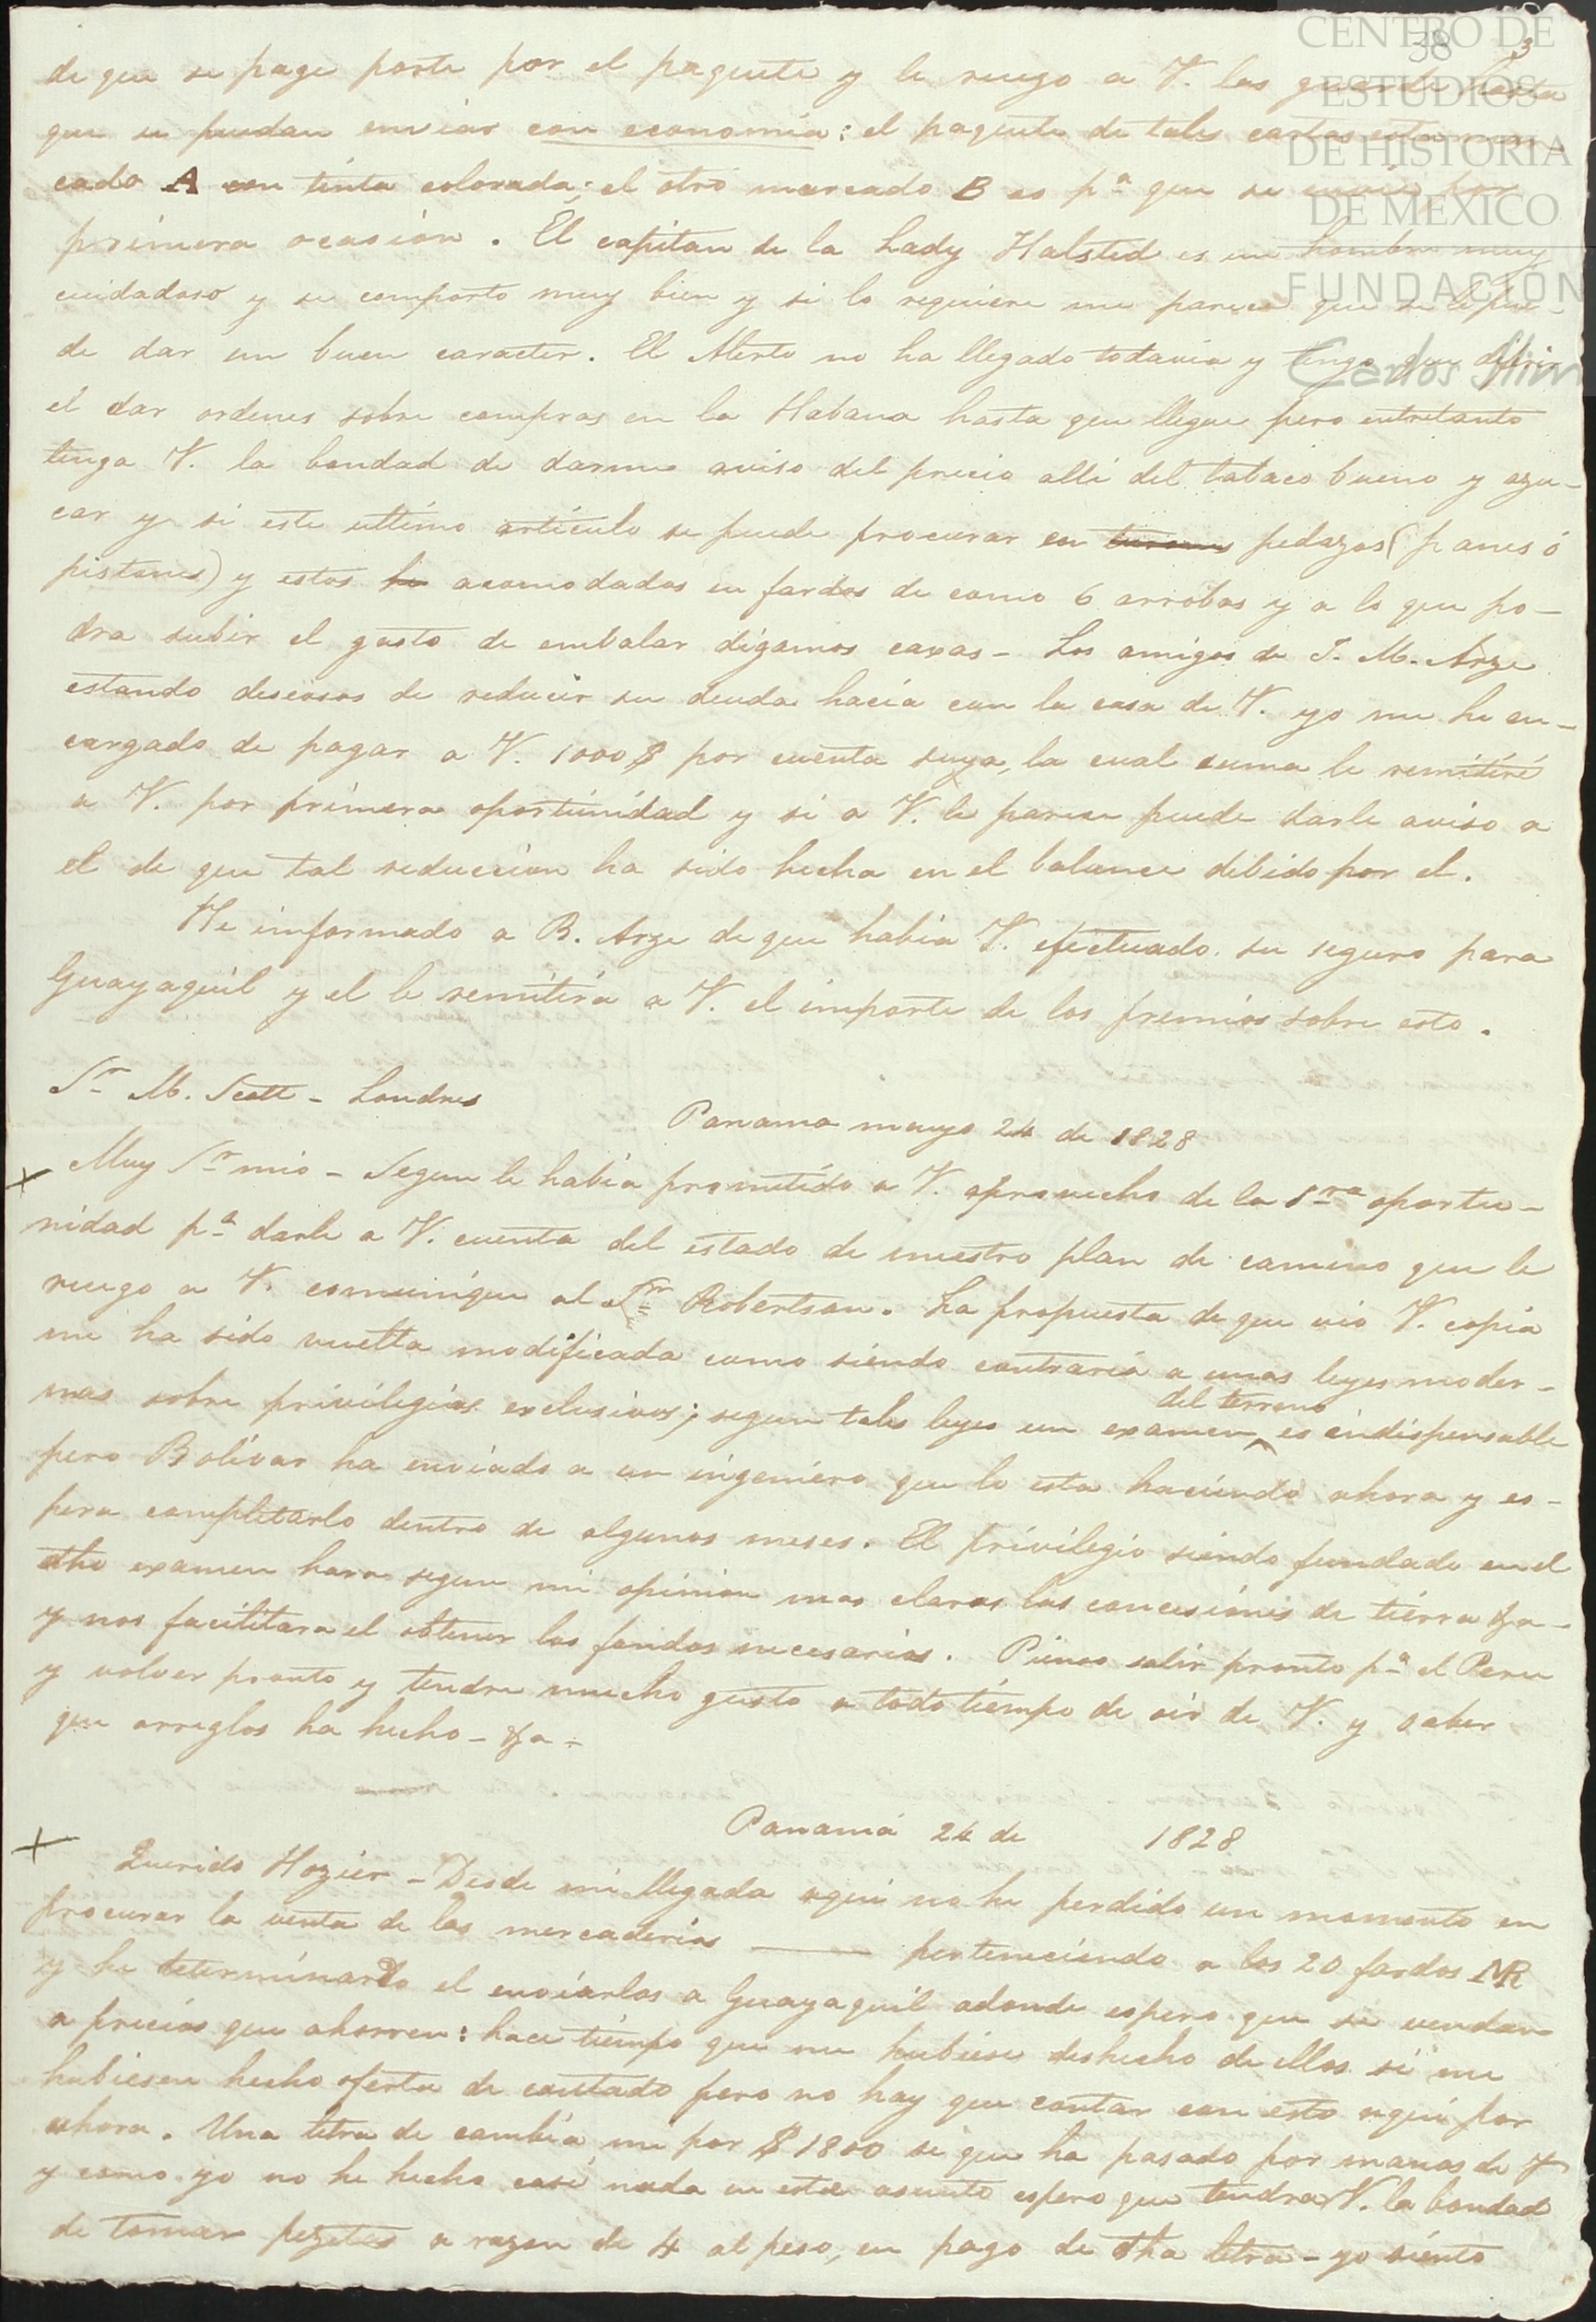 CENTRO DE
ESTUDIOS
DE HISTORIA
DE MEXICO
FUNDACIÓN
Carlos Slim
38 3
de que se page porte por el paquete y le ruego a V. las guarde hasta
que se puedan enviar con economia: el paquete de tales cartas esta mar-
cado A con tinta colorada; el otro marcado B es pª que se envie por
primera ocasion. El capitan de la Lady Halsted es un hombre muy
cuidadoso y se comporto muy bien y si lo requiere me parece que se le pue-
de dar un buen caracter. El Alerto no ha llegado todavia y tengo que diferir
el dar ordenes sobre compras en la Habana hasta que llegue pero entretanto
tenga V. la bondad de darme aviso del precio alli del tabaco bueno y azu-
car y si este ultimo articulo se puede procurar en pedazos (panes ó
pistones) y estos acomodados en fardos de como 6 arrobas y a lo que po-
dra subir el gasto de embalar digamos caxas - Los amigos de J. M. Arze
estando deseosos de reducir su deuda hacia con la casa de V. yo me he en-
cargado de pagar a V. 1000 $ por cuenta suya, la cual suma le remitiré
a V. por primera oportunidad y si a V. le parece puede darle aviso a
el de que tal reduccion ha sido hecha en el balance debido por el.
He informado a B. Arze de que habia V. efectuado su seguro para
Guayaquil y el le remitira a V. el importe de los premios sobre esto.
Sr M. Scott - Londres
Panama mayo 24 de 1828
Muy Sr mio - Segun le habia prometido a V. aprovecho de la 1ra oportu-
nidad pª darle a V. cuenta del estado de nuestro plan de camino que le
ruego a V. comunique al Sr Robertson. La propuesta de que vio V. copia
me ha sido vuelta modificada como siendo contraria a unas leyes moder-
nas sobre privilegios exclusivos; segun tales leyes un examen del terreno es indispensable
pero Bolivar ha enviado a un ingeniero que lo esta haciendo ahora y es-
pera completarlo dentro de algunos meses. El privilegio siendo fundado en el
dho examen hara segun mi opinion mas claras las concesiones de tierra &a-
y nos facilitara el obtener los fondos necesarios. Pienso salir pronto pª el Peru
y volver pronto y tendre mucho gusto a todo tiempo de oir de V. y saber
que arreglos ha hecho - &a -
Panamá 24 de 1828
Querido Hozier - Desde mi llegada aqui no he perdido un momento en
procurar la venta de las mercaderias —— perteneciendo a los 20 fardos MR
y he determinado el enviarlos a Guayaquil adonde espero que se vendan
a precios que ahorren: hace tiempo que me hubiese deshecho de ellos si me
hubiesen hecho oferta de contado pero no hay que contar con esto aqui por
ahora. Una letra de cambia me por $ 1800 se que ha pasado por manos de V
y como yo no he hecho casi nada en este asunto espero que tendra V. la bondad
de tomar pezetas a razon de 4 al peso, en pago de dha letra - yo siento